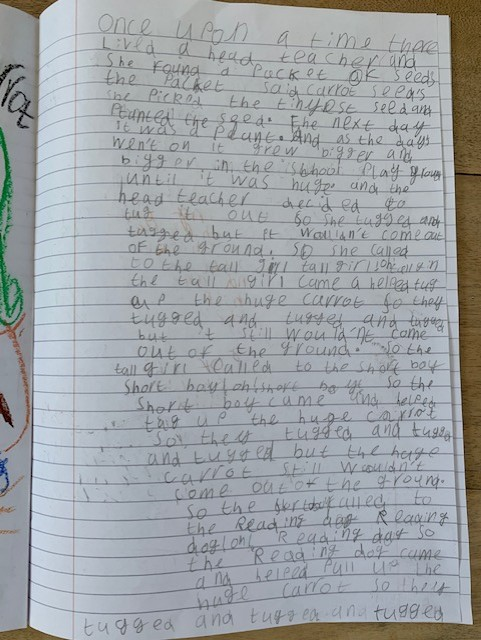 once upon a time there
Lived a head teacher and
She found a packet OK seeds
the packet said carrot seeds
she picked the tinyest seed and
Planted the seed. The next day
it was a plant. And as the days
went on it grew bigger and
bigger in the shhool Play
until it was huge and the
head teacher decided to
tug it out so she tugged and
tugged but it wouldn't come out
of the ground. so she called
to the tall girl tall girl
the tall girl came a helped tug
up the huge carrot so they
tugged and tugged and tugged
but it still wouldn't come
out of the ground. so the
tall girl called to the short boy
short boy loh short boy so the
short boy came and helped
tag up the huge carrot
so they tugged and tugged
and tugged but the huge
carrot still wouldn't
come out of the ground.
so the called to
the Reading dog Reading
dog loh Reading dog so
the Reading dog came
and helped Pull up the
huge carrot so they
tugged and tugged and tugged